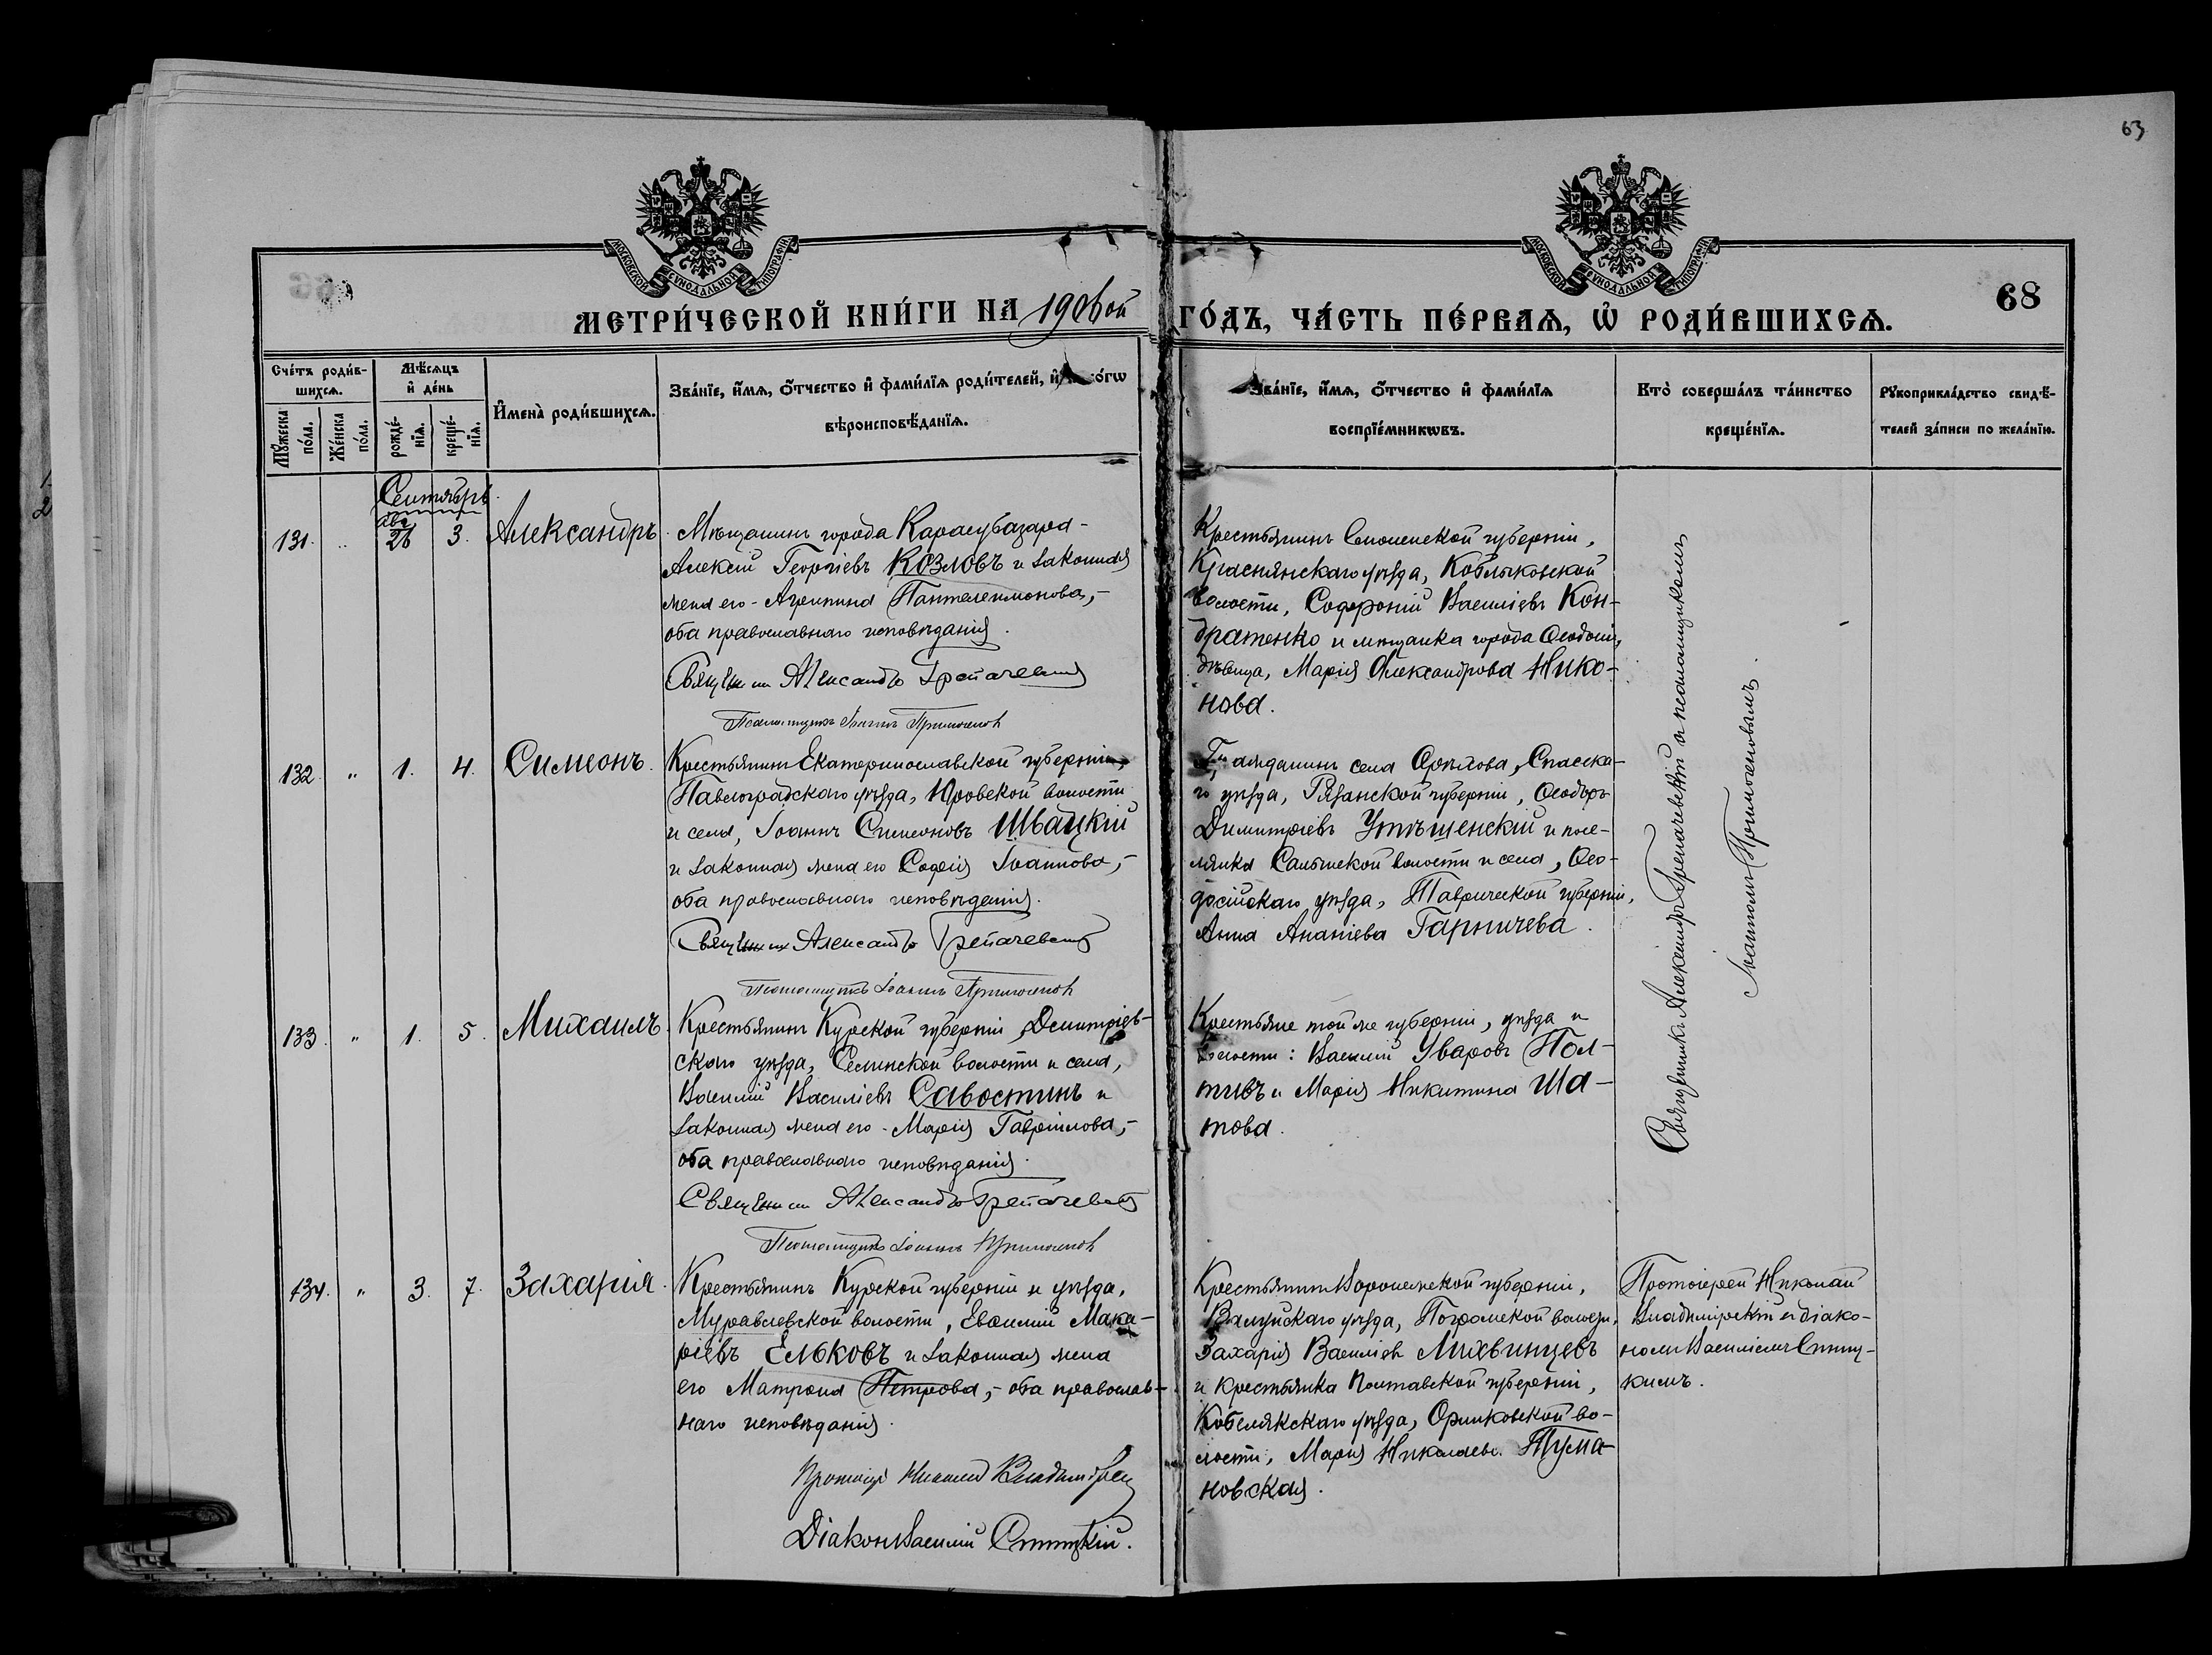 63
МОСКОВСКОЙ СѴНОДАЛЬНОЙ ТИПОГРАФІИ
МОСКОВСКОЙ СѴНОДАЛЬНОЙ ТИПОГРАФІИ
МЕТРИ́ЧЕСКОЙ КНИ́ГИ НА
ГО́ДЪ, ЧА́СТЬ ПЕ́РВАѦ, Ѡ҆ РОДИ́ВШИХСѦ.
68
Сче́тъ роди́в-
шихсѧ.
Мꙋ́жеска по́ла.
Же́нска по́ла.
Мѣ́сѧцъ
и҆ де́нь
рожде́-
нїѧ.
креще́-
нїѧ.
И҆мена̀ роди́вшихсѧ.
Зва́нїе, и҆́мѧ, ѻ҆́тчество и҆ фами́лїѧ роди́телей, и҆
вѣроисповѣ́данїѧ.
Зва́нїе, и҆́мѧ, ѻ҆́тчество и҆ фами́лїѧ
воспрїе́мникѡвъ.
Кто̀ соверша́лъ та́инство
креще́нїѧ.
Рꙋкоприкла́дство свидѣ́-
телей за́писи по жела́нїю.
Сентябрь.
131. " Авг. 26 3. Александръ.
Мѣщанинъ города Карасубазара -
Алексій Георгіевъ Козловъ и законная
жена его - Агриппина Пантелеимонова, -
оба православнаго исповѣданія.
Священник Александръ Трепачевскій
Псаломщикъ Іоаннъ Примоченов
Крестьянинъ Смоленской губерніи,
Краснянскаго уѣзда,
волости, Софроній Васильевъ Кон-
дратенко и мѣщанка города Ѳеодосіи,
дѣвица, Марія Александрова Нико-
нова.
132. " 1. 4. Симеонъ.
Крестьянинъ Екатеринославской губерніи,
Павлоградскаго уѣзда, Юровской волости
и села, Іоаннъ Симеоновъ Швацкій
и законная жена его Софія Іоаннова, -
оба православнаго исповѣданія.
Священник Александръ Трепачевскій
Псаломщикъ Іоаннъ Примоченов
Гражданинъ села Орѣхова, Спасска-
го уѣзда, Рязанской губерніи, Ѳеодоръ
Димитріевъ Утѣшенскій и посе-
лянка волости и села, Ѳео-
досійскаго уѣзда, Таврической губерніи,
Анна Ананіева Гарничева.
133. " 1. 5. Михаилъ.
Крестьянинъ Курской губерніи, Димитріев-
скаго уѣзда, Селинской волости и села,
Василій Василіевъ Савостинъ и
законная жена его - Марія Гавріилова, -
оба православнаго исповѣданія.
Священник Александръ Трепачевскій
Псаломщикъ Іоаннъ Примоченов
Крестьяне той же губерніи, уѣзда и
волости: Василій Уваровъ Пол-
тивъ и Марія Никитина Ша-
това.
Священникъ Александръ Трепачевскій съ псаломщикомъ
Іоанномъ Примоченовымъ.
134. " 3. 7. Захарія.
Крестьянинъ Курской губерніи и уѣзда,
Муравлевской волости, Евсимій Мака-
ріевъ Ельковъ и законная жена
его Матрона Петрова, - оба православ-
наго исповѣданія.
Протоіер Николай Владимірскій
Діаконъ Василій Ситницкій.
Крестьянинъ Воронежской губерніи,
Валуйскаго уѣзда, Погромской волости,
Захарія Василіев Михвинцевъ
и крестьянка Полтавской губерніи,
Кобелякскаго уѣзда, во-
лости, Марія Николаев. Тума-
новская.
Протоіерей Николай
Владимірскій съ діако-
номъ Василіемъ Ситниц-
кимъ.